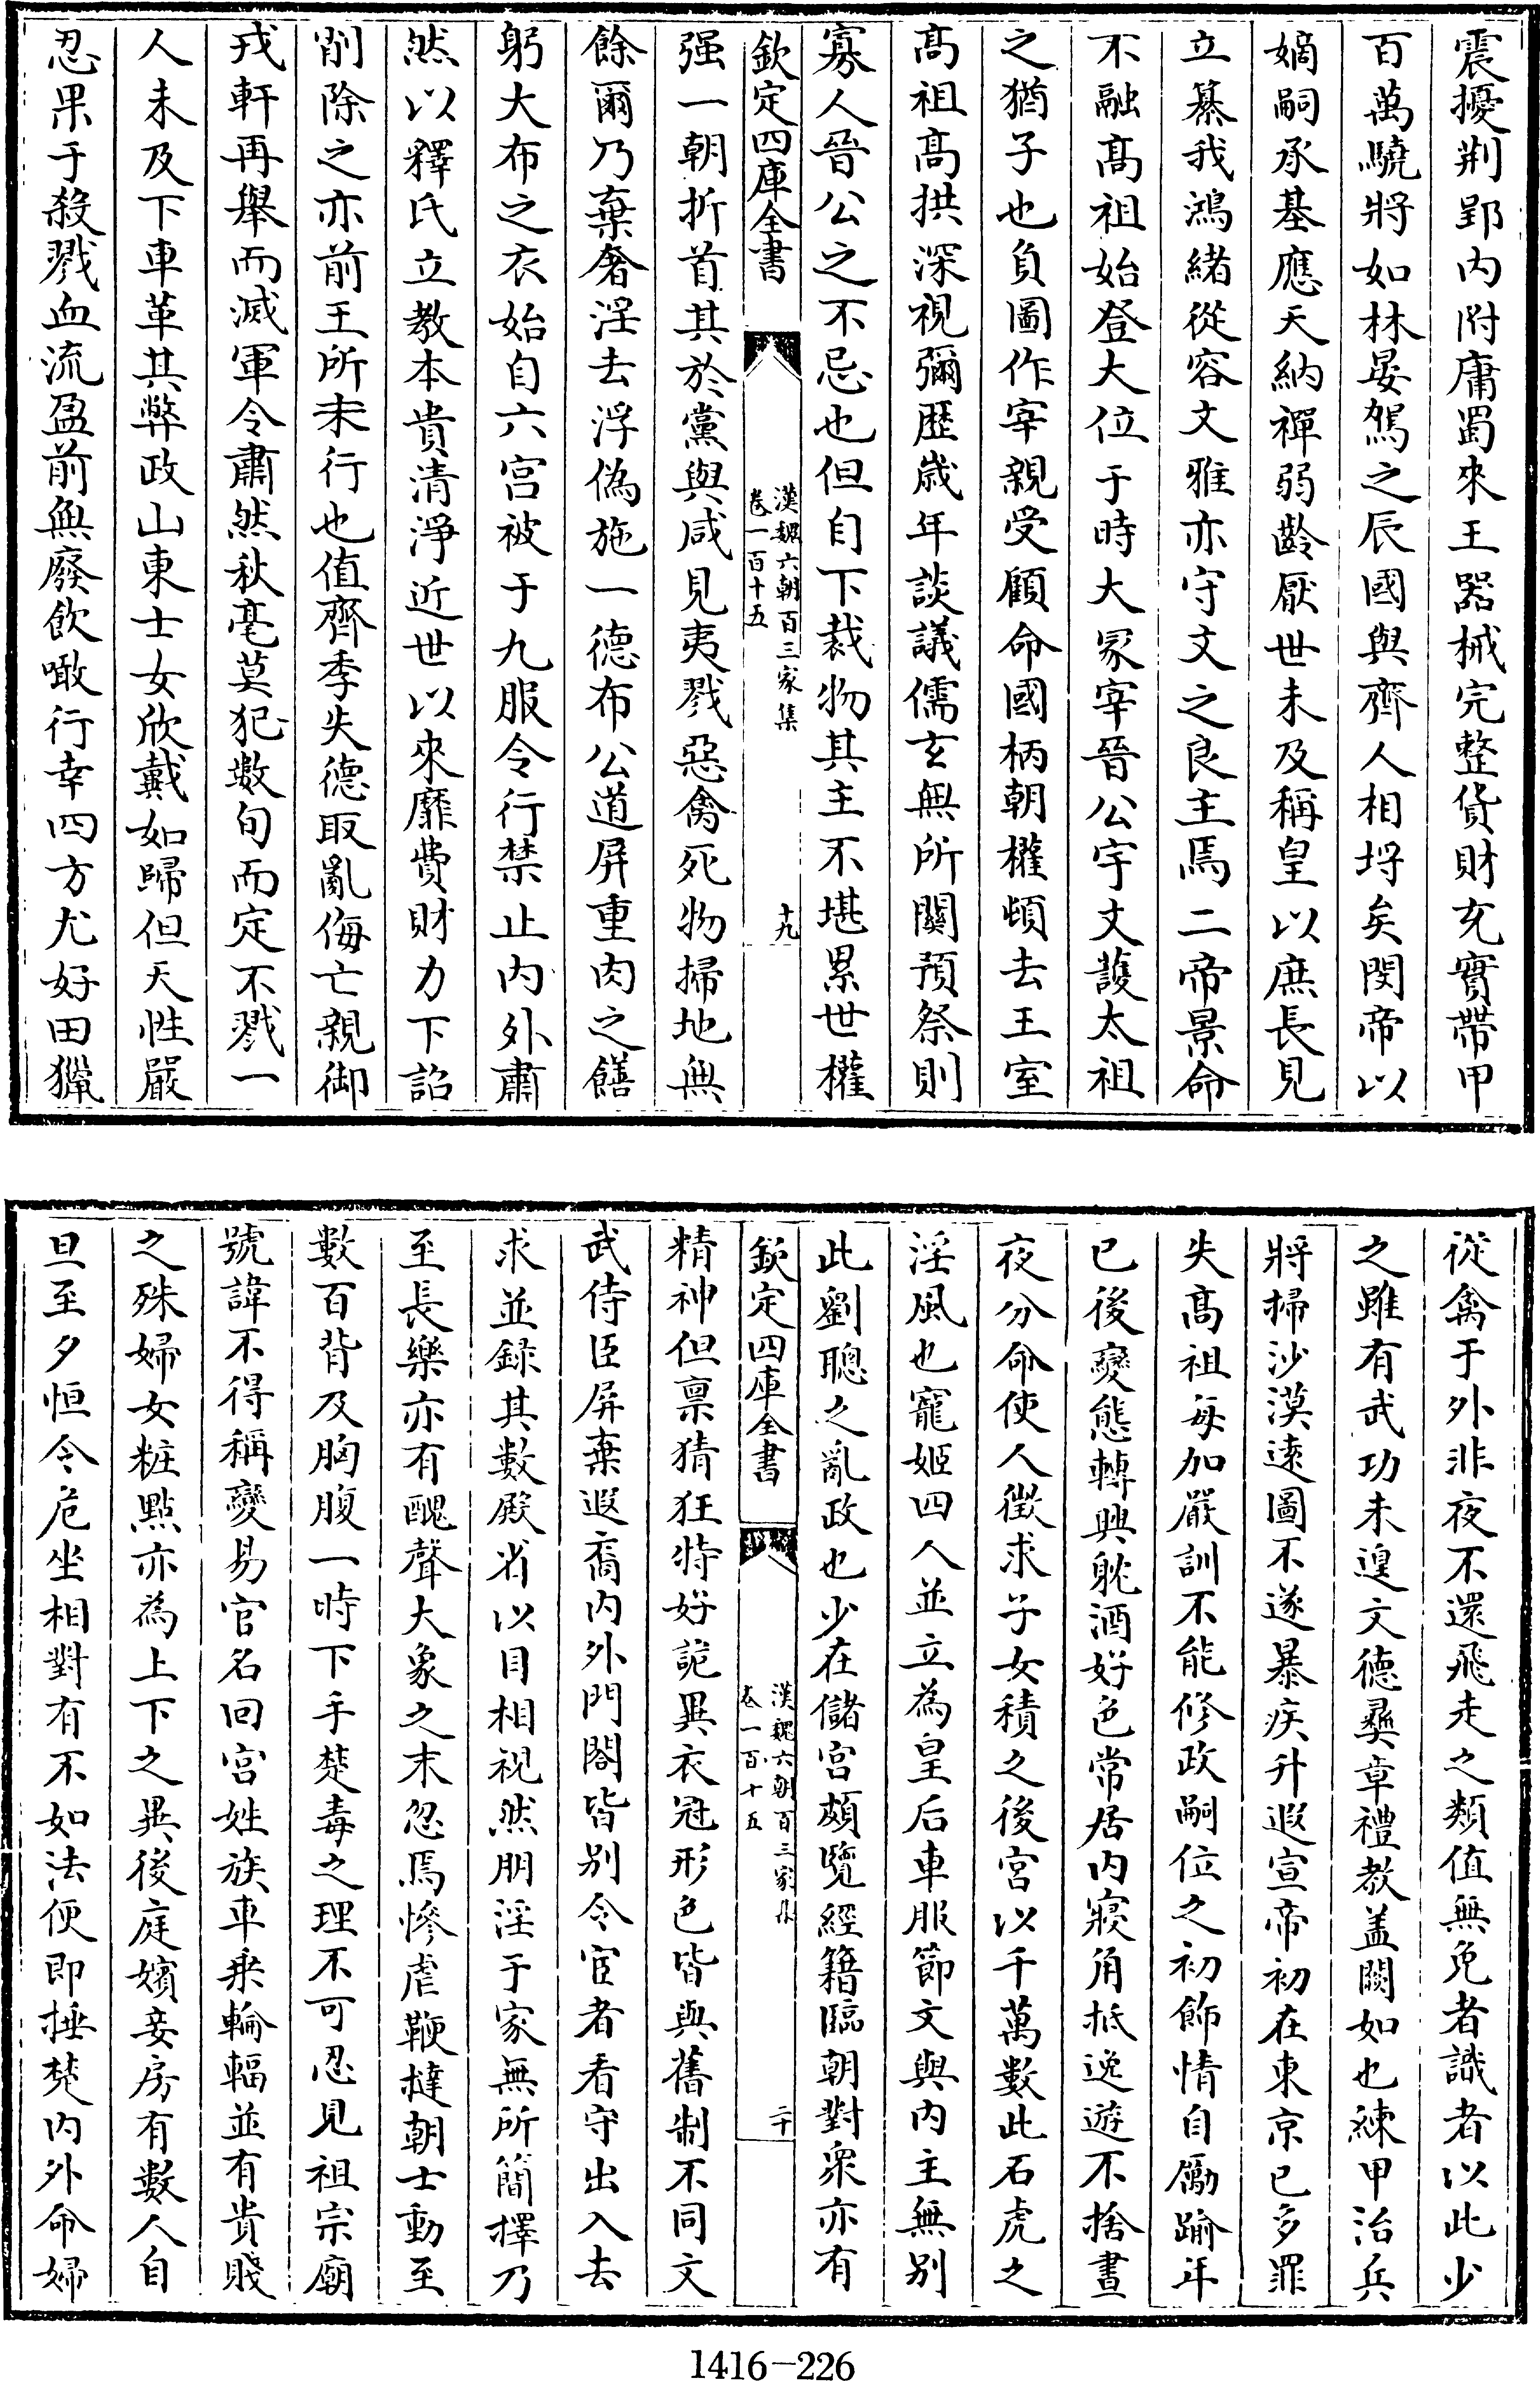 震擾荆郢内附庸蜀來王器械完整貨財充實帶甲
百萬驍將如林晏駕之辰國與齊人相埒矣閔帝以
嫡嗣承基應天納禪弱齡厭世未及稱皇以庶長見
立纂我鴻緒從容文雅亦守文之良主焉二帝景命
不融髙祖始登大位于時大冢宰晉公宇文護太祖
之猶子也負圖作宰親受顧命國柄朝權頓去王室
髙祖髙拱深視彌歴歳年談議儒玄無所關預祭則
寡人晉公之不忌也但自下裁物其主不堪累世權
欽定四庫全書
漢魏六朝百三家集
卷一百十五
十九
强一朝折首其於黨與咸見夷戮惡禽死物掃地無
餘爾乃棄奢淫去浮偽施一德布公道屏重肉之饍
躬大布之衣始自六宫被于九服令行禁止内外肅
然以釋氏立教本貴清淨近世以來靡費財力下詔
削除之亦前王所未行也值齊季失德取亂侮亡親御
戎軒再舉而滅軍令肅然秋毫莫犯數旬而定不戮一
人未及下車革其弊政山東士女欣戴如歸但天性嚴
忍果于殺戮血流盈前無廢飲噉行幸四方尤好田獵
從禽于外非夜不還飛走之類值無免者識者以此少
之雖有武功未遑文德彞章禮教盖闕如也練甲治兵
將掃沙漠逺圖不遂暴疾升遐宣帝初在東京已多罪
失髙祖每加嚴訓不能修政嗣位之初飾情自勵踰年
已後變態轉興躭酒好色常居内寢角抵逸遊不捨晝
夜分命使人徴求子女積之後宫以千萬數此石虎之
淫風也寵姬四人並立為皇后車服節文與内主無别
此劉聰之亂政也少在儲宫頗覽經籍臨朝對衆亦有
欽定四庫全書
漢魏六朝百三家集
卷一百十五
二十
精神但禀猜狂特好詭異衣冠形色皆與舊制不同文
武侍臣屏棄遐裔内外門閤皆别令宦者看守出入去
求並録其數殿省以目相視然朋淫于家無所簡擇乃
至長樂亦有醜聲大象之末忽焉慘虐鞭撻朝士動至
數百背及胸腹一時下手楚毒之理不可忍見祖宗廟
號諱不得稱變易官名回宫姓族車乘輪輻並有貴賤
之殊婦女粧點亦為上下之異後庭嬪妾房有數人自
旦至夕恒令危坐相對有不如法便即捶楚内外命婦
1416—226